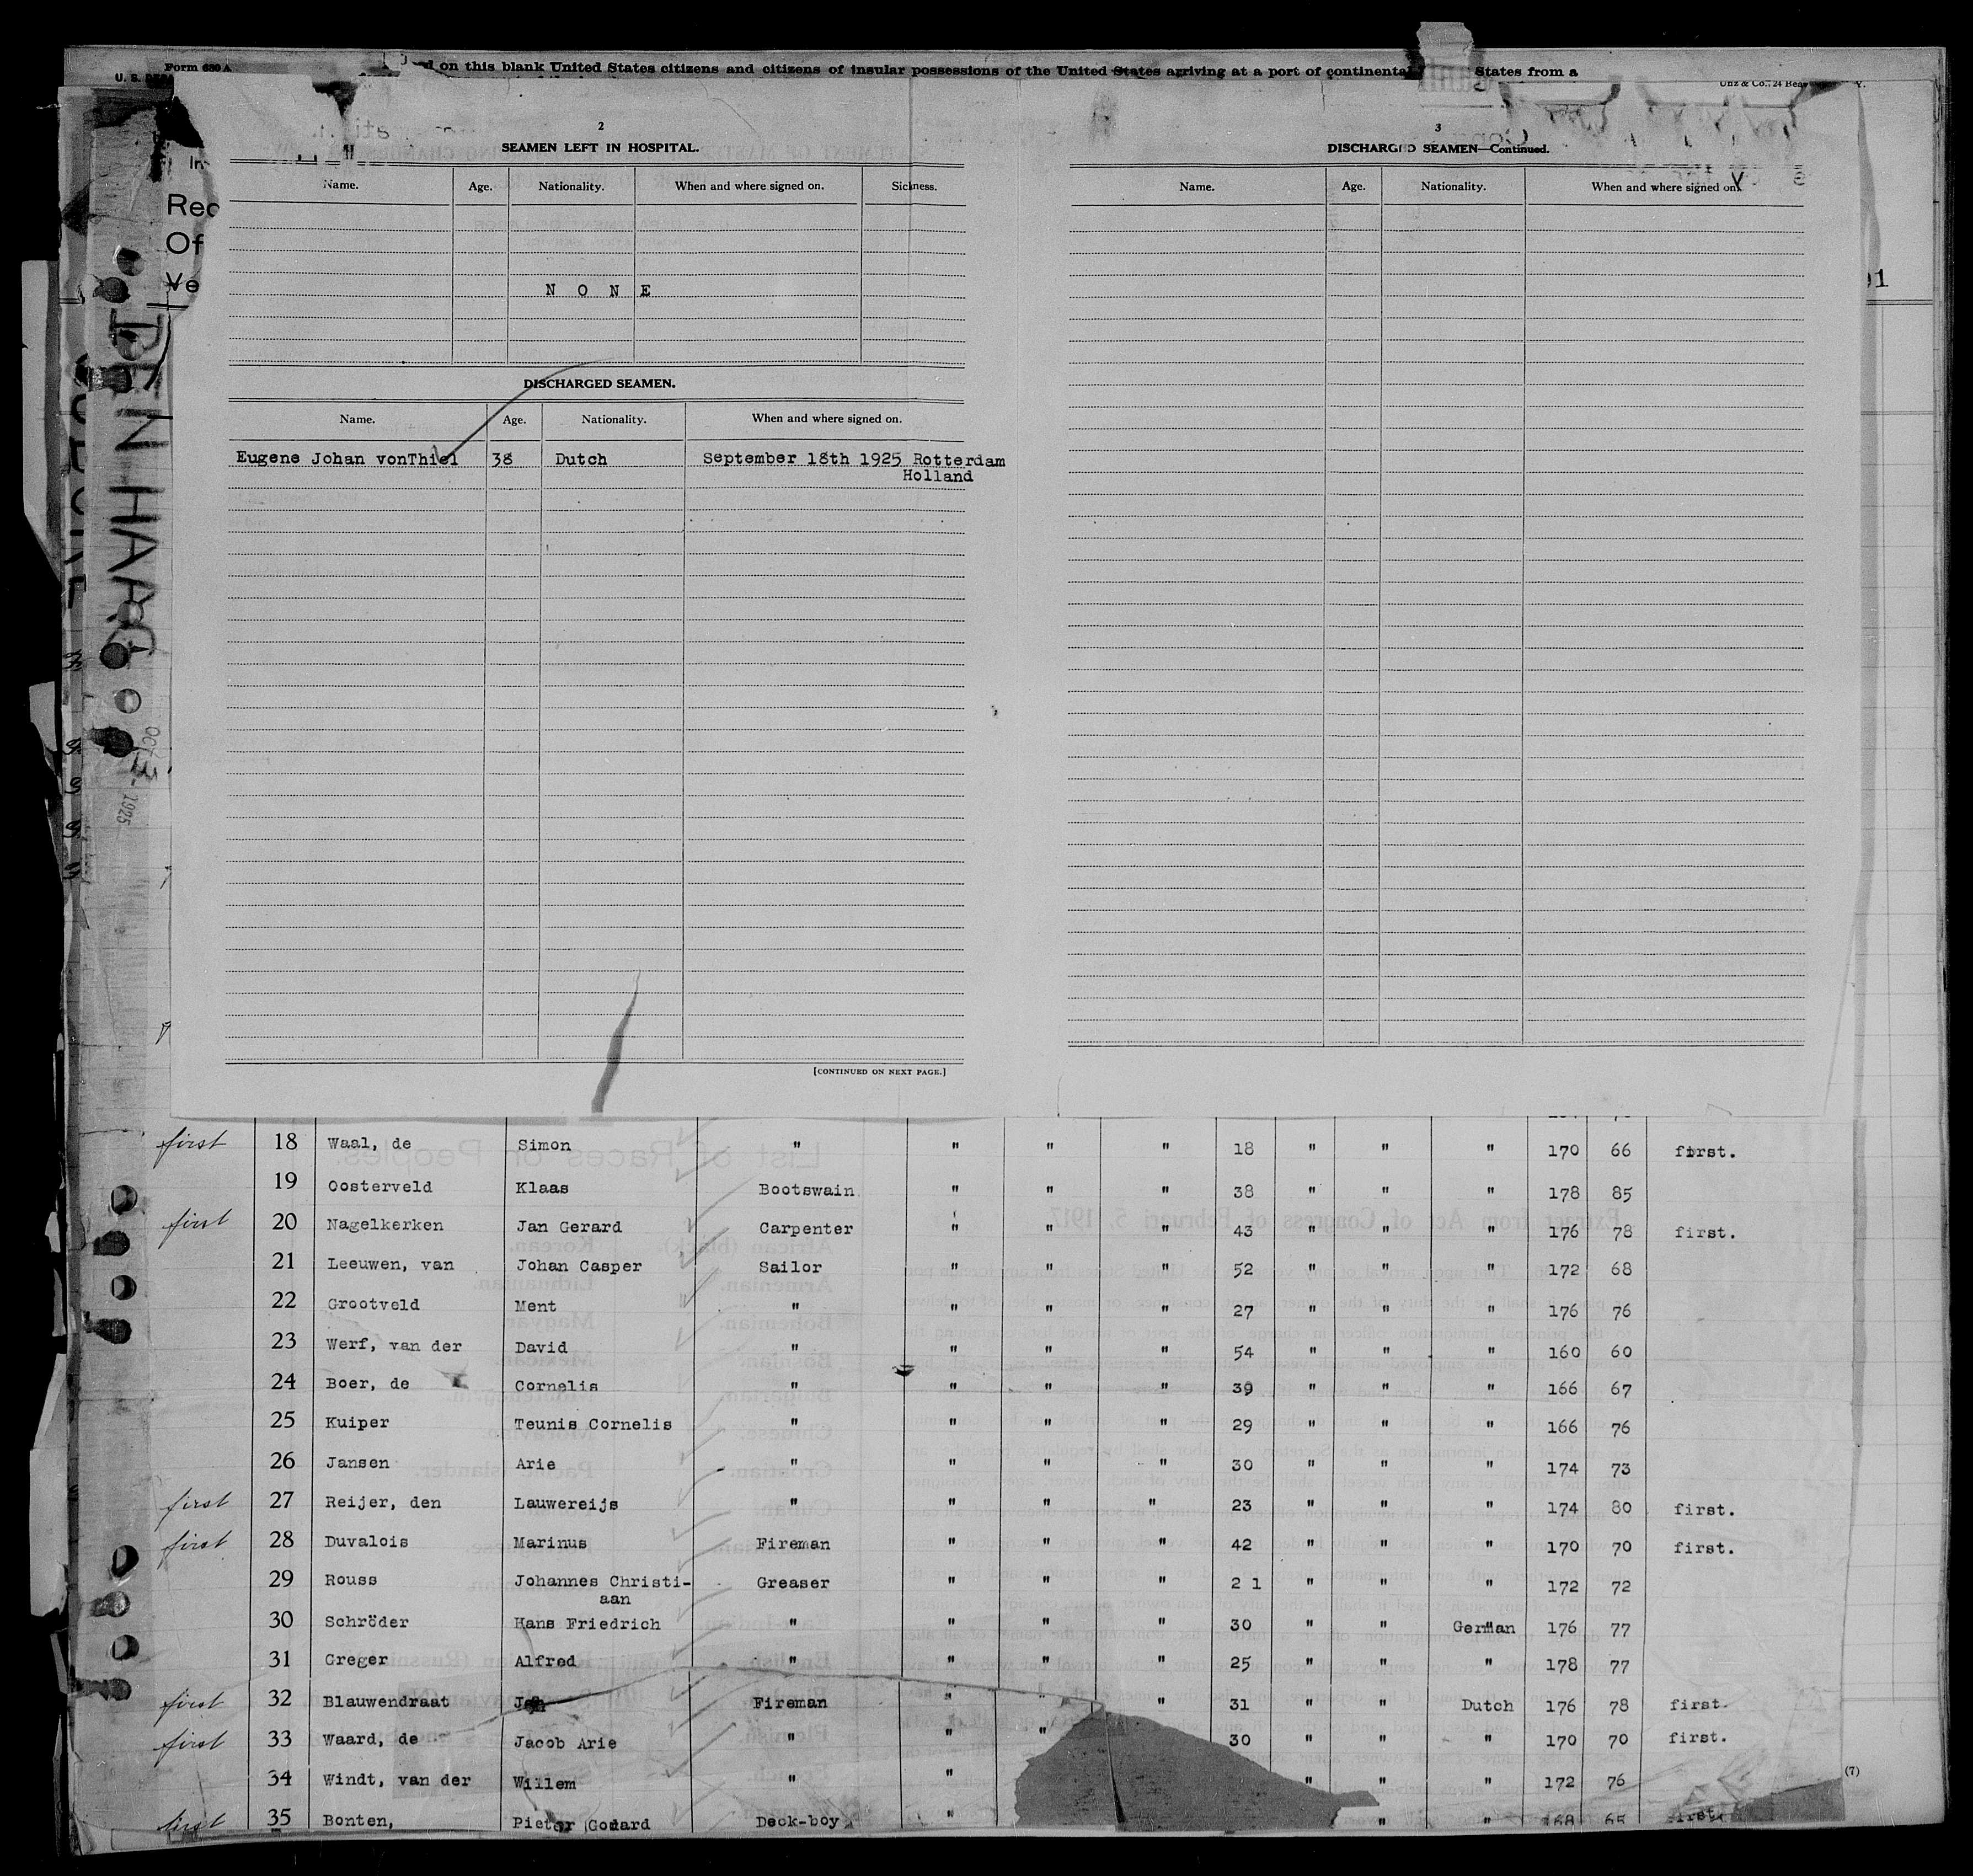 Form 680 A
on this blank United States citizens and citizens of insular possessions of the United States arriving at a port of continental States from a
2
SEAMEN LEFT IN HOSPITAL.
Name. Age. Nationality. When and where signed on. Sickness.
N O N E
DISCHARGED SEAMEN.
Name. Age. Nationality. When and where signed on.
Eugene Johan vonThiel 38 Dutch September 18th 1925 Rotterdam
Holland
[CONTINUED ON NEXT PAGE.]
3
DISCHARGED SEAMEN—Continued.
Name. Age. Nationality. When and where signed on.
OCT 3 - 1925
first 18 Waal, de Simon " " " " 18 " " " 170 66 first.
19 Oosterveld Klaas Bootswain " " " 38 " " " 178 85
first 20 Nagelkerken Jan Gerard Carpenter " " " 43 " " " 176 78 first.
21 Leeuwen, van Johan Casper Sailor " " " 52 " " " 172 68
22 Grootveld Ment " " " " 27 " " " 176 76
23 Werf, van der David " " " " 54 " " " 160 60
24 Boer, de Cornelis " " " " 39 " " " 166 67
25 Kuiper Teunis Cornelis " " " " 29 " " " 166 76
26 Jansen Arie " " " " 30 " " " 174 73
first 27 Reijer, den Lauwereijs " " " " 23 " " " 174 80 first.
first 28 Duvalois Marinus Fireman " " " 42 " " " 170 70 first.
29 Rouss Johannes Christi- Greaser " " " 2 1 " " " 172 72
aan
30 Schröder Hans Friedrich " " " " 30 " " German 176 77
31 Greger Alfred " " " " 25 " " " 178 77
first 32 Blauwendraat Jan Fireman " " " 31 " " Dutch 176 78 first.
first 33 Waard, de Jacob Arie " " " 30 " " " 170 70 first.
34 Windt, van der Willem " " " " " 172 76
(7)
first 35 Bonten, Pieter Godard Deck-boy " " " 168 65 first.